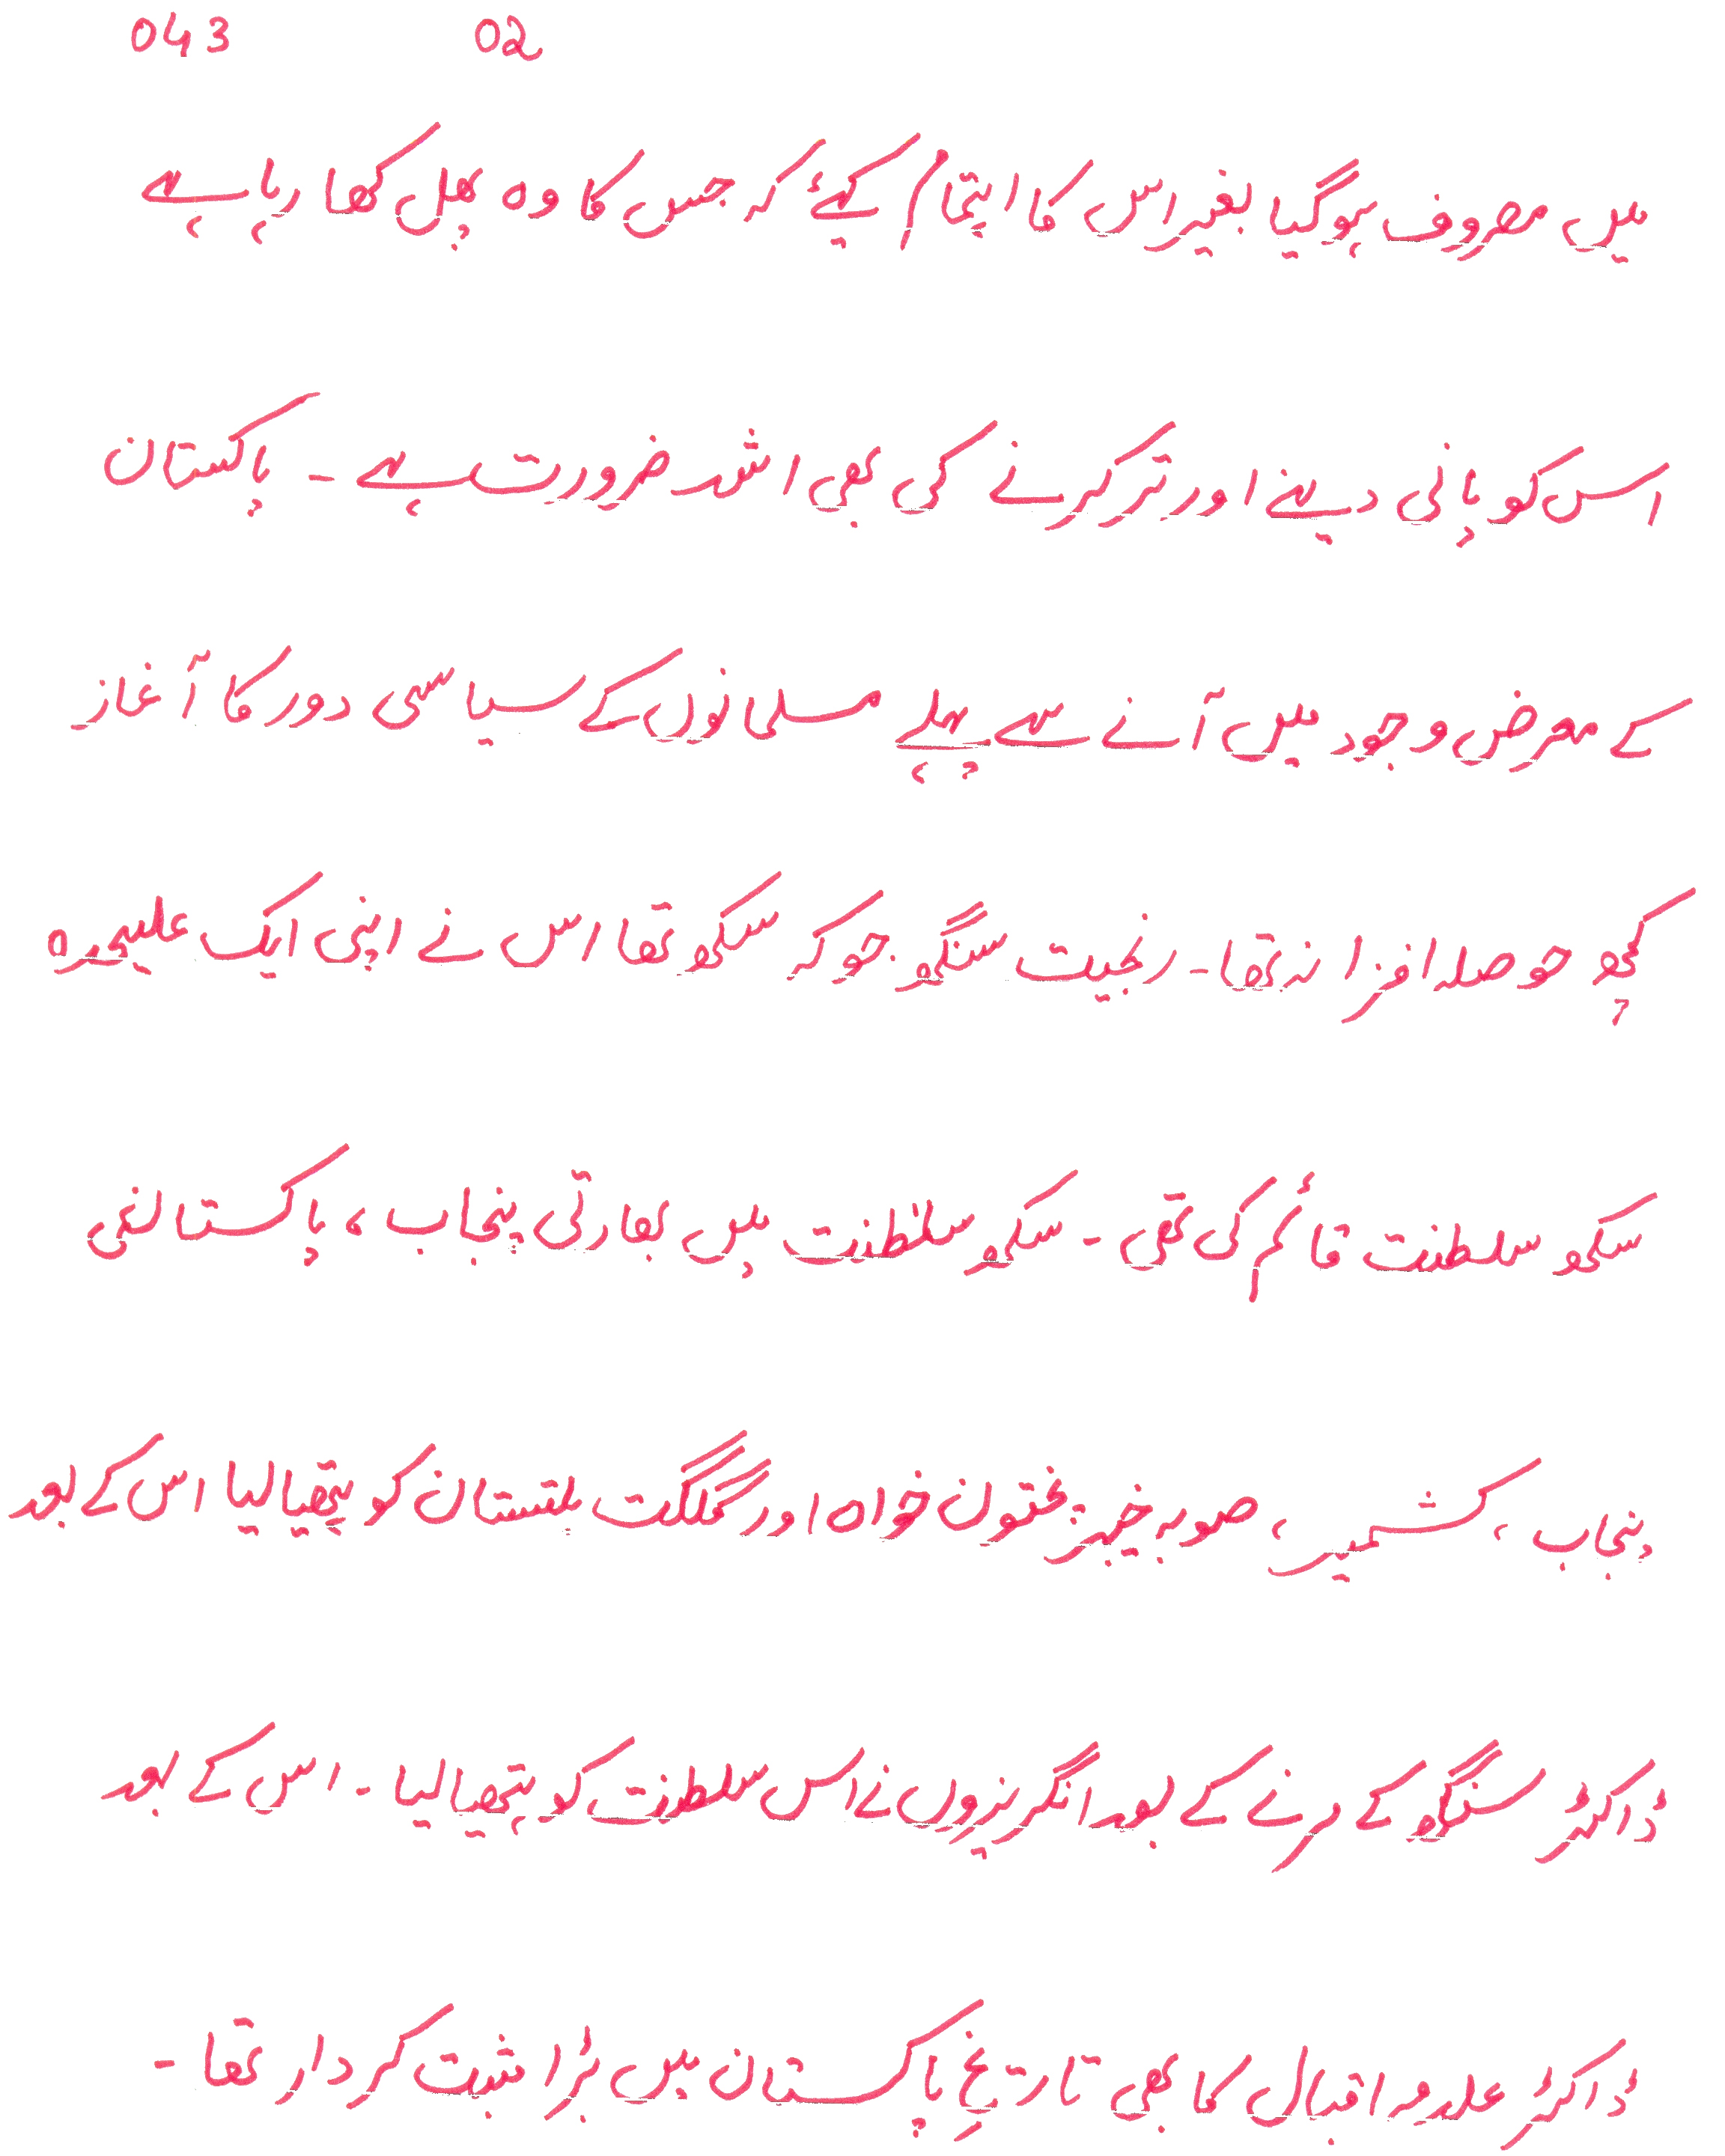 043 02
میں مصروف ہوگیا بغیر اس کا اہتمام کیے کہ جس کا وہ پھل کھا رہا ہے
اس کو پانی دینے اور تر کرنے کی بھی اشد ضرورت ہے ۔ پاکستان
کے معرض وجود میں آنے سے پہلے مسلمانوں کے سیاسی دور کا آغاز
کچھ حوصلہ افزا نہ تھا ۔ رنجیت سنگھ جو کہ سکھ تھا اس نے اپنی ایک علیحدہ
سکھ سلطنت قائم کی تھی ۔ سکھ سلطنت میں بھارتی پنجاب ، پاکستانی
پنجاب ، کشمیر ، صوبہ خیبر پختون خواہ اور گلگت بلتستان کو ہتھیا لیا اس کے بعد
ڈاکٹر سنگھ کے مرنے کے بعد انگریزوں نے اس سلطنت کو ہتھیا لیا ۔ اس کے بعد
ڈاکٹر علامہ اقبال کا بھی تاریخ پاکستان میں بڑا مثبت کردار تھا ۔